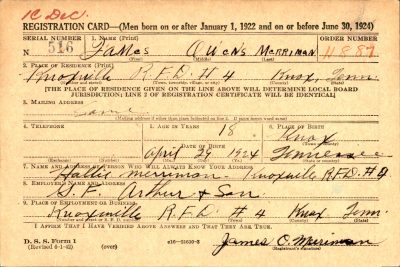 1C Dec.
REGISTRATION CARD—(Men born on or after January 1, 1922 and on or before June 30, 1924)
SERIAL NUMBER 1. NAME (Print) ORDER NUMBER
N 516 JAMES OWENS MERRIMAN 11887
(First) (Middle) (Last)
2. PLACE OF RESIDENCE (Print)
Knoxville R.F.D. #4 Knox, Tenn
[THE PLACE OF RESIDENCE GIVEN ON THE LINE ABOVE WILL DETERMINE LOCAL BOARD
JURISDICTION; LINE 2 OF REGISTRATION CERTIFICATE WILL BE IDENTICAL]
3. MAILING ADDRESS
Same
[Mailing address if other than place indicated on line 2. If same insert word same]
4. TELEPHONE 5. AGE IN YEARS 6. PLACE OF BIRTH
18 Knox
DATE OF BIRTH (Town or county)
April 1924 Tennessee
(Exchange) (Number) (Mo.) (Day) (Yr.) (State or country)
7. NAME AND ADDRESS OF PERSON WHO WILL ALWAYS KNOW YOUR ADDRESS
Hattie merriman Knoxville R.F.D. #4
8. EMPLOYER'S NAME AND ADDRESS
S. F. Arthur & Son
9. PLACE OF EMPLOYMENT OR BUSINESS
Knoxville R.F.D. #4 Knox Tenn.
I AFFIRM THAT I HAVE VERIFIED ABOVE ANSWERS AND THAT THEY ARE TRUE.
D. S. S. Form 1
(Revised 6-1-42) (over) 16—21630-3 James O. Merriman
(Registrant's signature)